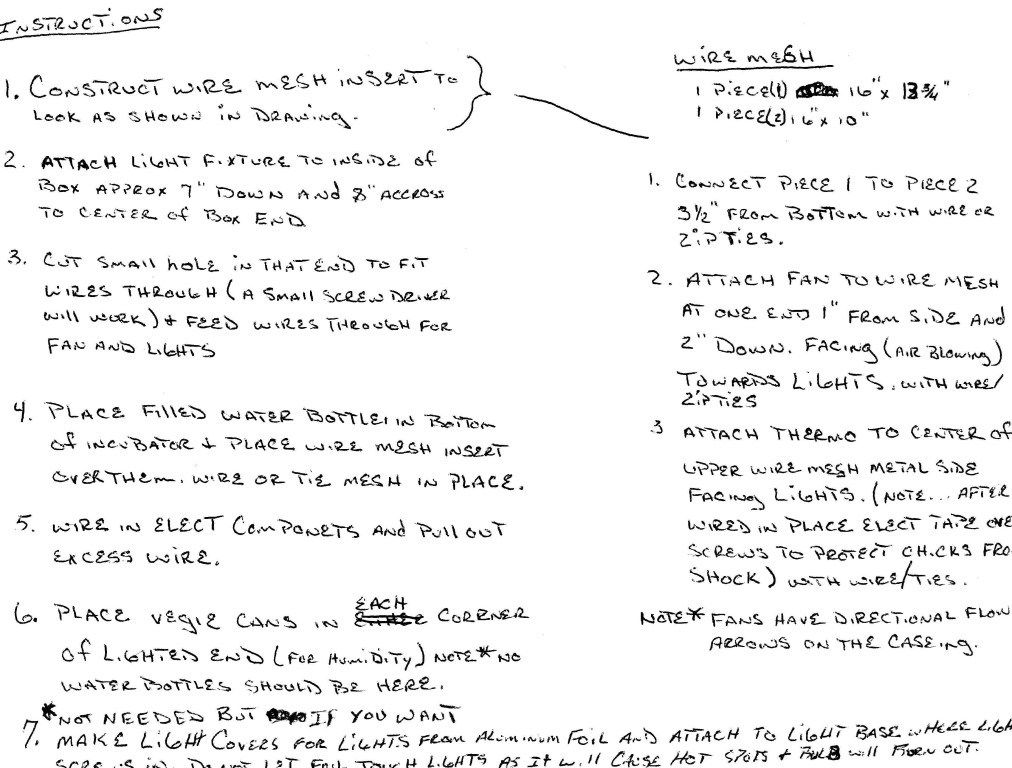 INSTRUCTIONS
1. CONSTRUCT WIRE MESH INSERT TO
LOOK AS SHOWN IN DRAWING.
2. ATTACH LIGHT FIXTURE TO INSIDE OF
BOX APPROX 7" DOWN AND 8" ACCROSS
TO CENTER OF BOX END
3. CUT SMALL HOLE IN THAT END TO FIT
WIRES THROUGH (A SMALL SCREW DRIVER
WILL WORK) + FEED WIRES THROUGH FOR
FAN AND LIGHTS
4. PLACE FILLED WATER BOTTLES IN BOTTOM
OF INCUBATOR + PLACE WIRE MESH INSERT
OVER THEM. WIRE OR TIE MESH IN PLACE.
5. WIRE IN ELECT COMPONETS AND PULL OUT
EXCESS WIRE.
6. PLACE VEGIE CANS IN EACH CORRNER
OF LIGHTED END (FOR HUMIDITY) NOTE* NO
WATER BOTTLES SHOULD BE HERE.
*NOT NEEDED BUT IF YOU WANT
7. MAKE LIGHT COVERS FOR LIGHTS FROM ALUMINUM FOIL AND ATTACH TO LIGHT BASE WHERE LIGH
SCREWS IN. DO NOT LET FOIL TOUCH LIGHTS AS IT WILL CAUSE HOT SPOTS + BULB WILL BURN OUT.
WIRE MESH
1 PIECE(1) 16" x 13 3/4"
1 PIECE(2) 16" x 10"
1. CONNECT PIECE 1 TO PIECE 2
3 1/2" FROM BOTTOM WITH WIRE OR
ZIP TIES.
2. ATTACH FAN TO WIRE MESH
AT ONE END 1" FROM SIDE AND
2" DOWN. FACING (AIR BLOWING)
TOWARDS LIGHTS. WITH WIRE/
ZIPTIES
3 ATTACH THERMO TO CENTER OF
UPPER WIRE MESH METAL SIDE
FACING LIGHTS. (NOTE... AFTER
WIRED IN PLACE ELECT TAPE OVE
SCREWS TO PROTECT CHICKS FRO
SHOCK) WITH WIRE/TIES.
NOTE* FANS HAVE DIRECTIONAL FLOW
ARROWS ON THE CASEING.